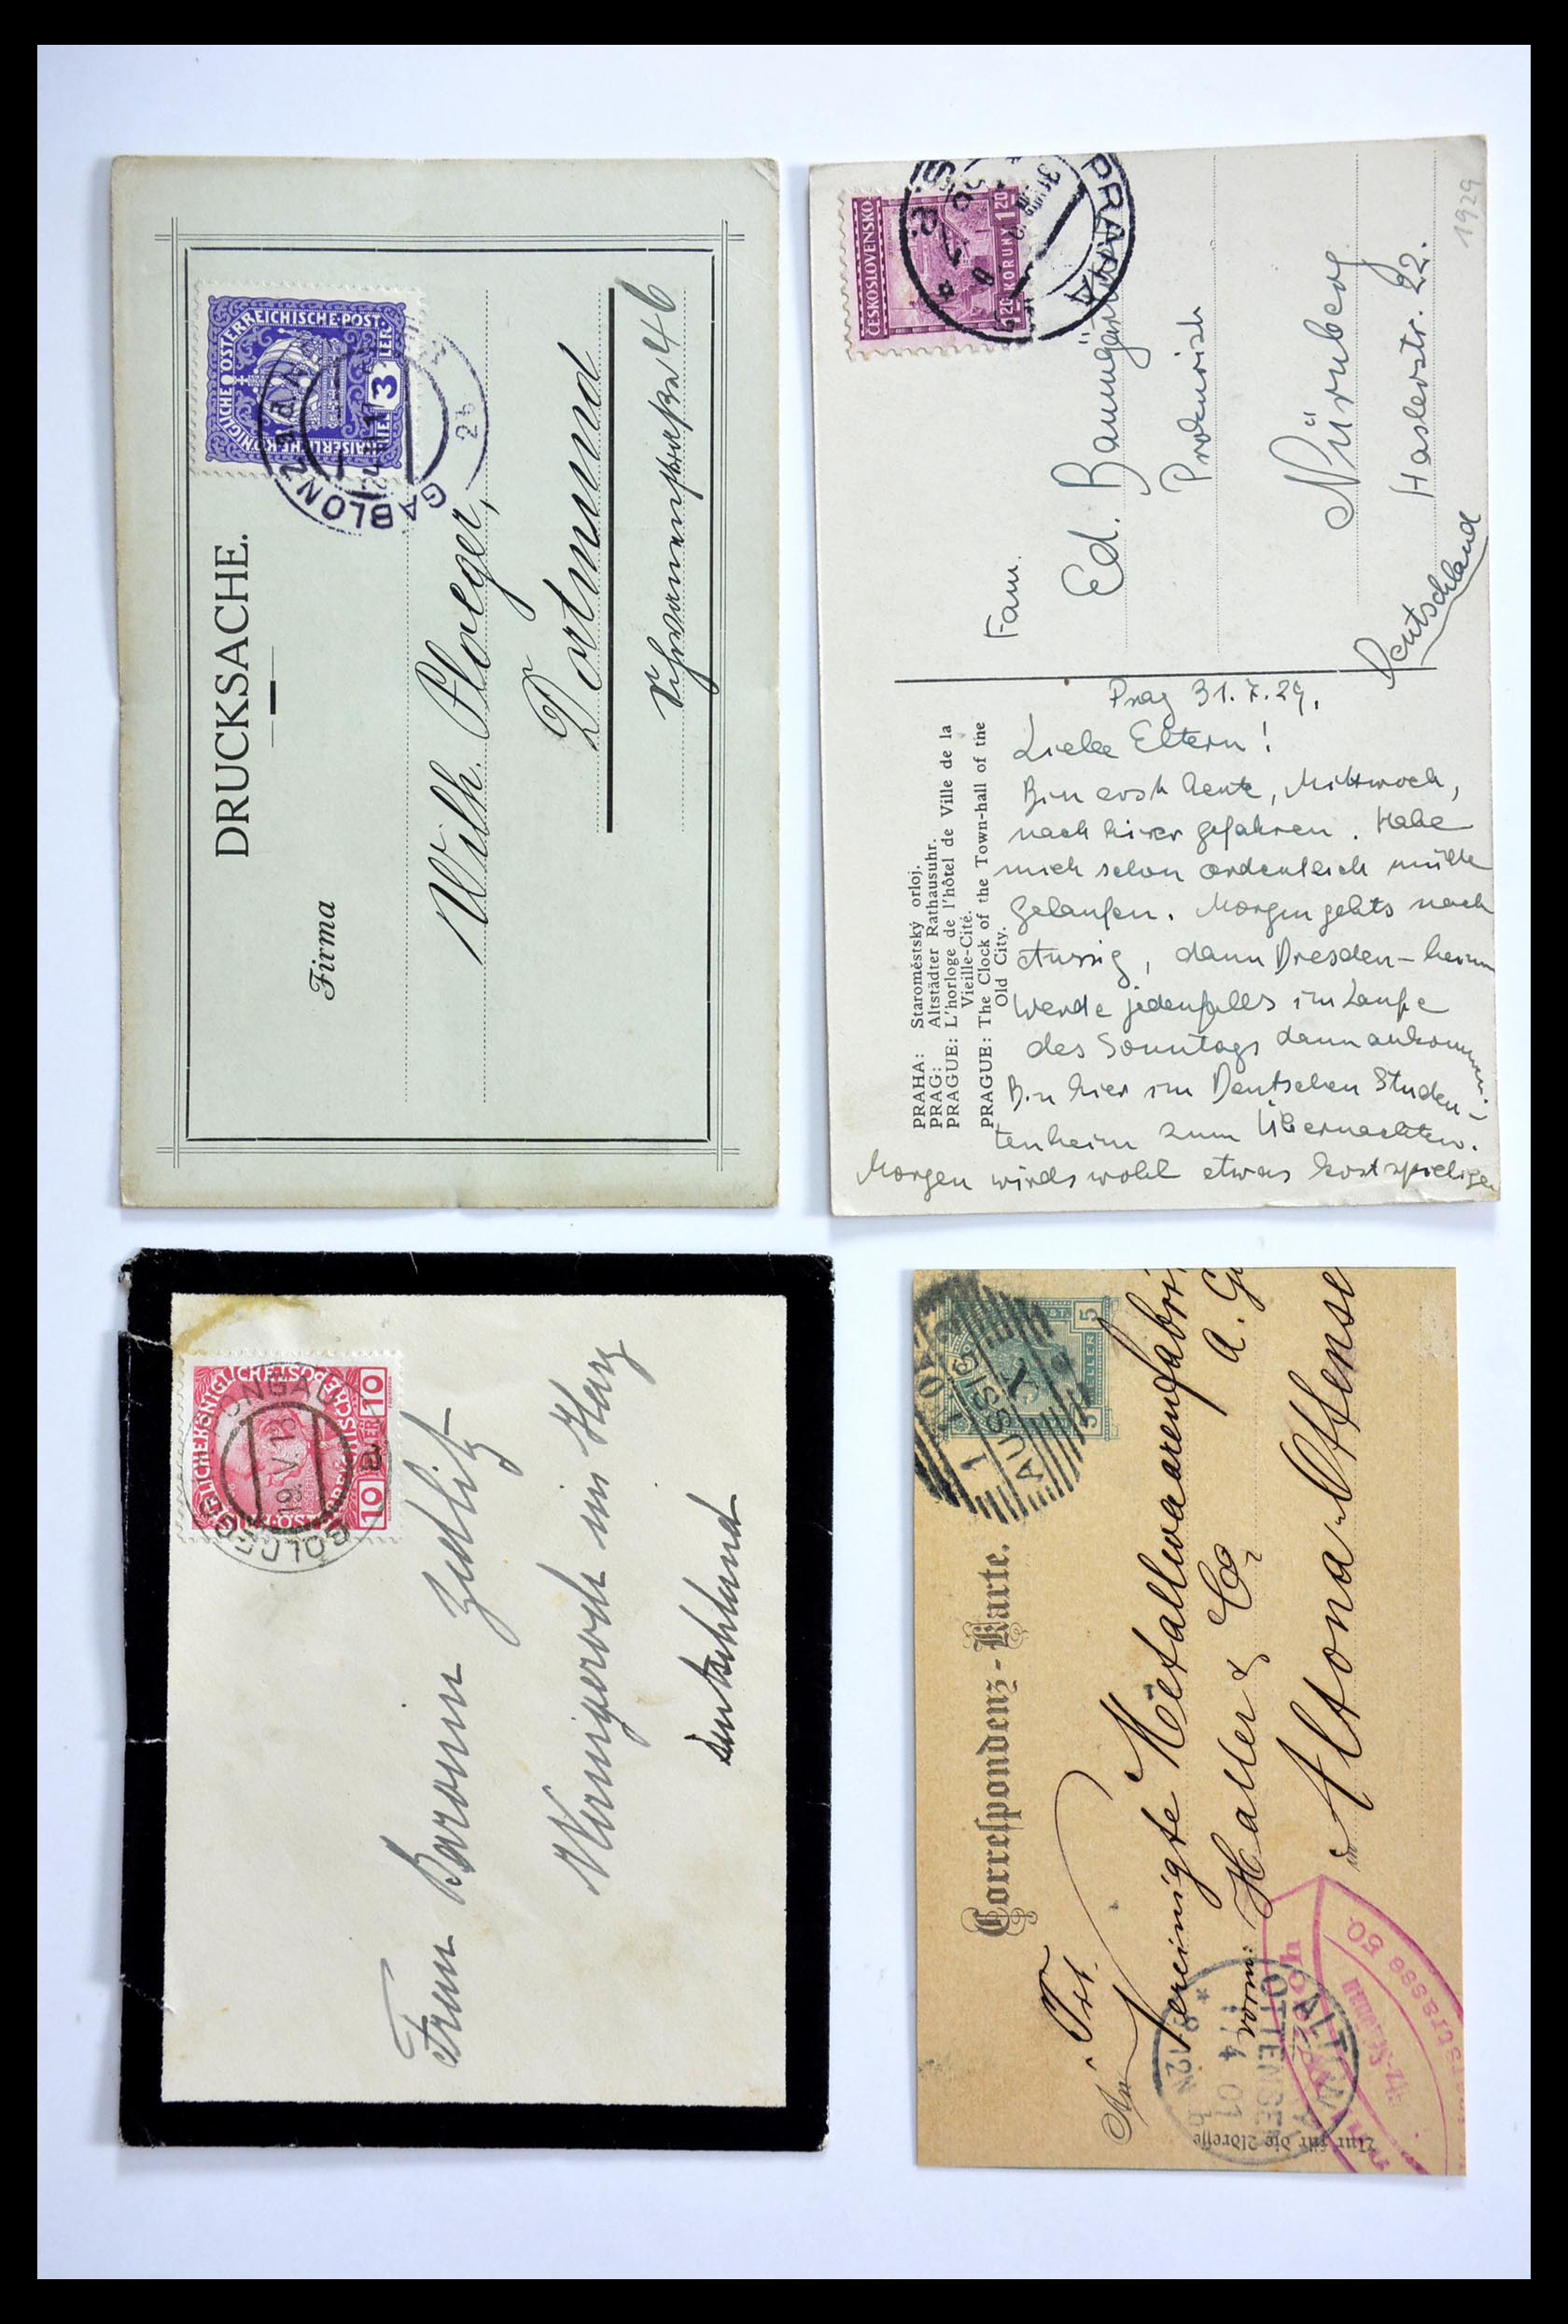 DRUCKSACHE.
Firma
Wilh. Ploeger,
Dortmund
Schwanenstraße 46
KAISERLICHE KÖNIGLICHE ÖSTERREICHISCHE POST
3
GABLONZ
2b
ČESKOSLOVENSKO
1.20 KORUNY 1.20
PRAHA
1929
Fam.
Ed. Baumgärtner
Prokurist
Nürnberg
Haslerstr. 22.
Deutschland
PRAHA: Staroměstský orloj.
PRAG: Altstädter Rathausuhr.
PRAGUE: L'horloge de l'hôtel de Ville de la
Vieille-Cité.
PRAGUE: The Clock of the Town-hall of the
Old City.
Prag 31.7.29.
Liebe Eltern!
Bin erst heute, Mittwoch,
nach hier gefahren. Habe
mich schon ordentlich müde
gelaufen. Morgen gehts nach
Aussig, dann Dresden – heim
Werde jedenfalls im Laufe
des Sonntags dann ankommen.
Bin hier im Deutschen Studen-
tenheim zum Übernachten.
Morgen wirds wohl etwas kostspieliger
10 HELLER 10
19.V.13
a
Frau Baronin Zedlitz
Wernigerode im Harz
Deutschland
Correspondenz-Karte.
5 HELLER 5
AUSSIG
1
Tit.
An
Vereinigte Metallwaarenfabri
vorm: Haller & Co A. G
in Altona-Ottense
Nur für die Adresse
ALTONA
OTTENSEN
1/4 01
8-12 N
b
strasse 50.